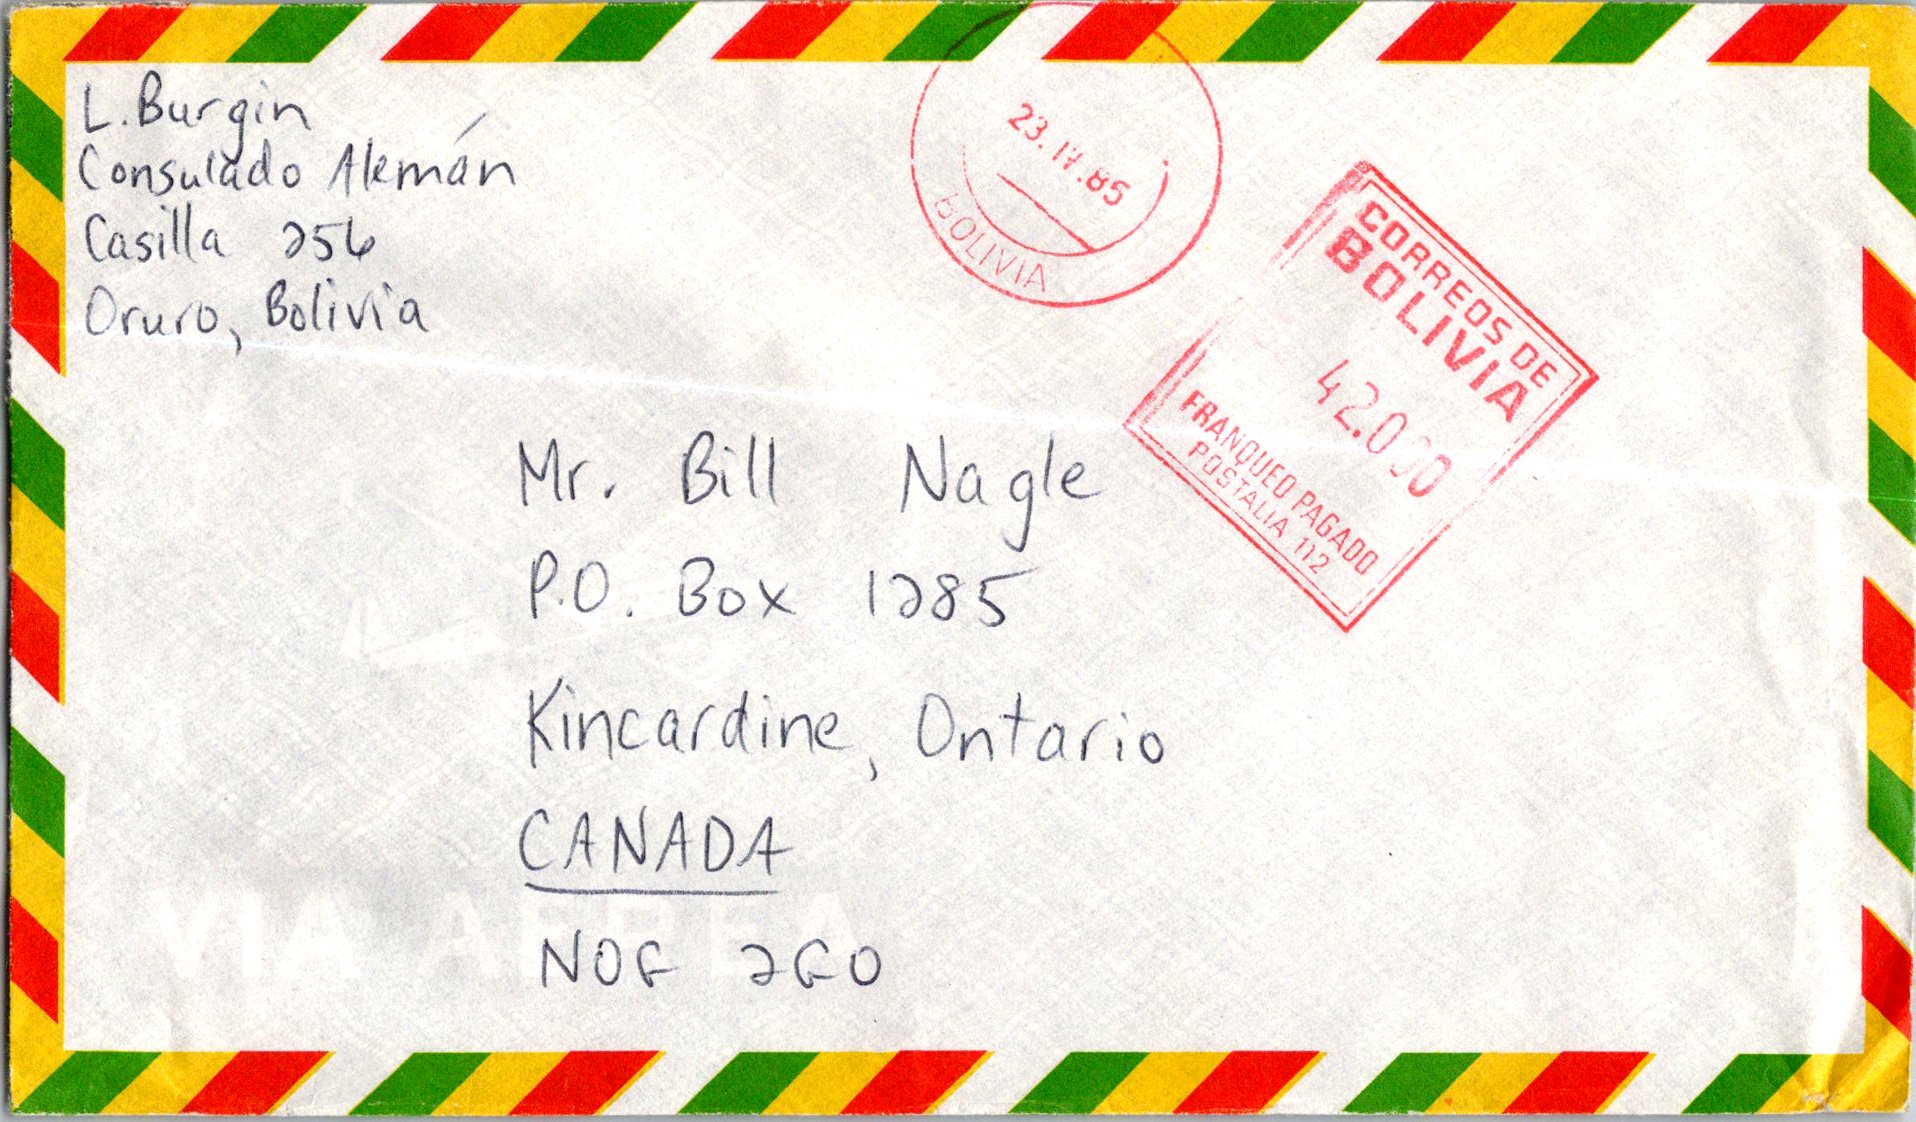 L. Burgin
Consulado Alemán
Casilla 256
Oruro, Bolivia
23.IV.85
BOLIVIA
CORREOS DE
BOLIVIA
42.000
FRANQUEO PAGADO
POSTALIA 112
Mr. Bill Nagle
P.O. Box 1285
Kincardine, Ontario
CANADA
N0G 2G0
VIA AEREA